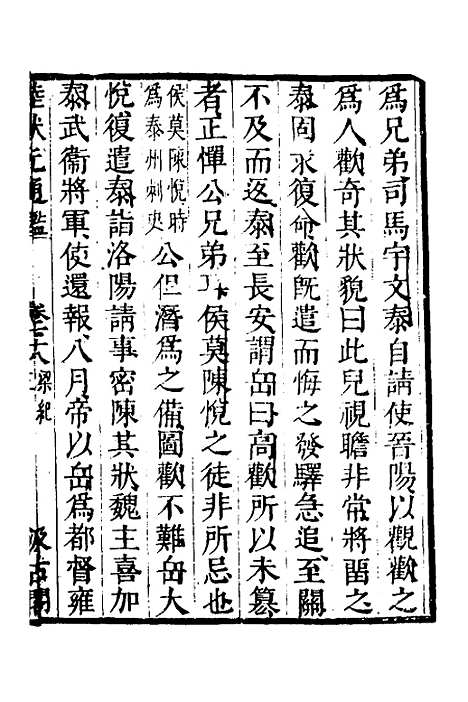 爲兄弟司馬宇文泰自請使晉陽以觀歡之
爲人歡奇其狀貌曰此兒視瞻非常將畱之
泰固求復命歡旣遣而悔之發驛急追至關
不及而返泰至長安謂岳曰高歡所以未篡
者正憚公兄弟耳侯莫陳悅之徒非所忌也
侯莫陳悅時
爲秦州刺史
公但潛爲之備圖歡不難岳大
悅復遣泰詣洛陽請事密陳其狀魏主喜加
泰武衞將軍使還報八月帝以岳爲都督雍
陸狀元通鑑
卷七十八
梁紀
汲古閣